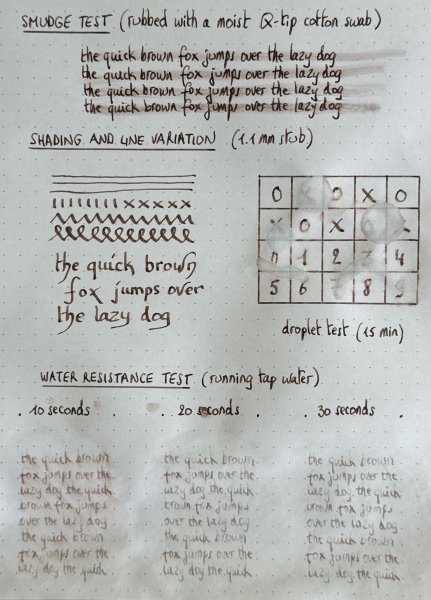 SMUDGE TEST (rubbed with a moist Q-tip cotton swab)
the quick brown fox jumps over the lazy dog
the quick brown fox jumps over the lazy dog
the quick brown fox jumps over the lazy dog
the quick brown fox jumps over the lazy dog
SHADING AND LINE VARIATION (1.1 mm stub)
the quick brown
fox jumps over
the lazy dog
O X O X O
X O X O X
0 1 2 3 4
5 6 7 8 9
droplet test (15 min)
WATER RESISTANCE TEST (running tap water)
10 seconds 20 seconds 30 seconds
the quick brown the quick brown the quick brown
fox jumps over the fox jumps over the fox jumps over the
lazy dog the quick lazy dog the quick lazy dog the quick
brown fox jumps brown fox jumps brown fox jumps
over the lazy dog over the lazy dog over the lazy dog
the quick brown the quick brown the quick brown
fox jumps over the fox jumps over the fox jumps over the
lazy dog the quick lazy dog the quick lazy dog the quick